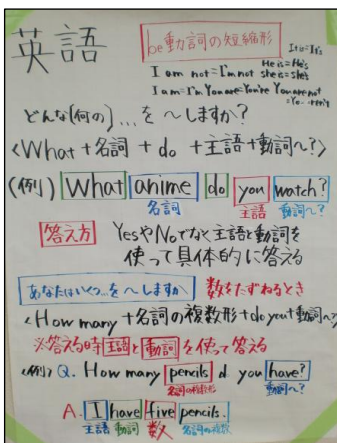 英語
be動詞の短縮形
It is=It's
He is=He's
I am not=I'm not she is=she's
I am=I'm You are=You're You are not
どんな(何の)...を〜しますか?
<What+名詞+do+主語+動詞〜?>
(例) What anime do you watch?
名詞 主語 動詞〜?
答え方 YesやNoでなく主語と動詞を
使って具体的に答える
あなたはいくつ...を〜しますか 数をたずねるとき
<How many+名詞の複数形+do you+動詞〜?>
※答える時主語と動詞を使って答える
(例) Q. How many pencils d you have?
名詞の複数形 動詞〜?
A. I have five pencils.
主語 動詞 数 名詞の複数形